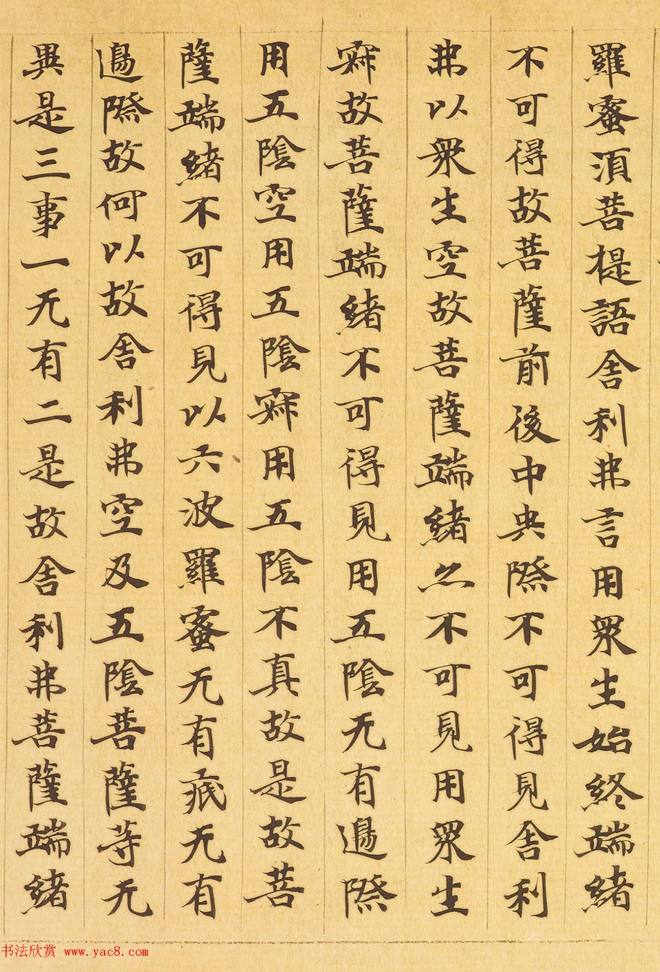 羅蜜須菩提語舍利弗言用衆生始終端緒
不可得故菩薩前後中央際不可得見舍利
弗以衆生空故菩薩端緒亦不可見用衆生
寂故菩薩端緒不可得見用五陰无有邊際
用五陰空用五陰寂用五陰不真故是故菩
薩端緒不可得見以六波羅蜜无有底无有
邊際故何以故舍利弗空及五陰菩薩等无
異是三事一无有二是故舍利弗菩薩端緒
书法欣赏 www.yac8.com